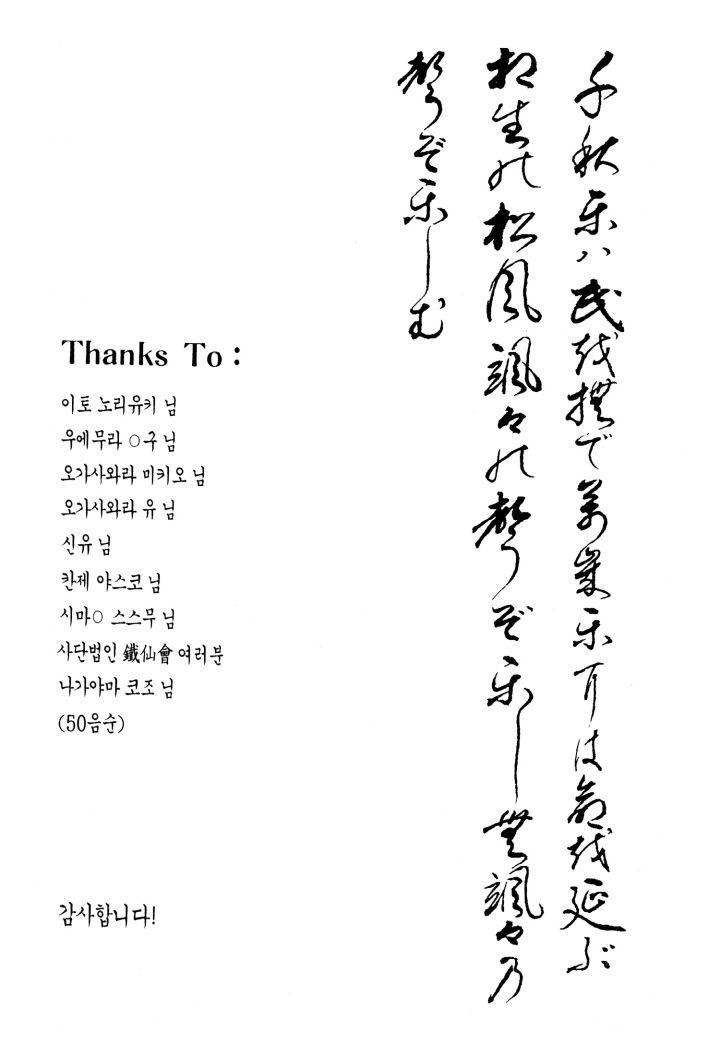 千秋楽ハ民を撫で萬歳楽には命を延ぶ
相生の松風颯々の聲ぞ楽しむ颯々乃
聲ぞ楽しむ
Thanks To :
이토 노리유키 님
우에무라 ○구 님
오가사와라 미키오 님
오가사와라 유 님
신유 님
칸제 야스코 님
시마○ 스스무 님
사단법인 鐵仙會 여러분
나가야마 코조 님
(50음순)
감사합니다!